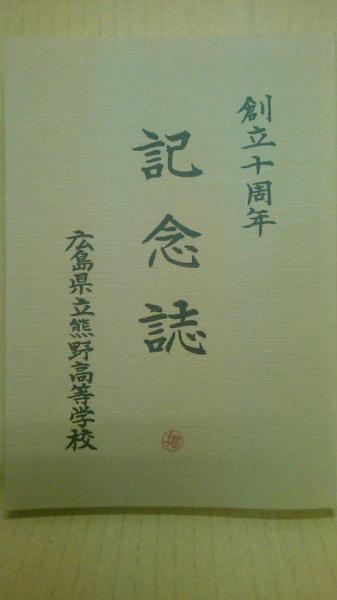 創立十周年
記念誌
広島県立熊野高等学校
堀